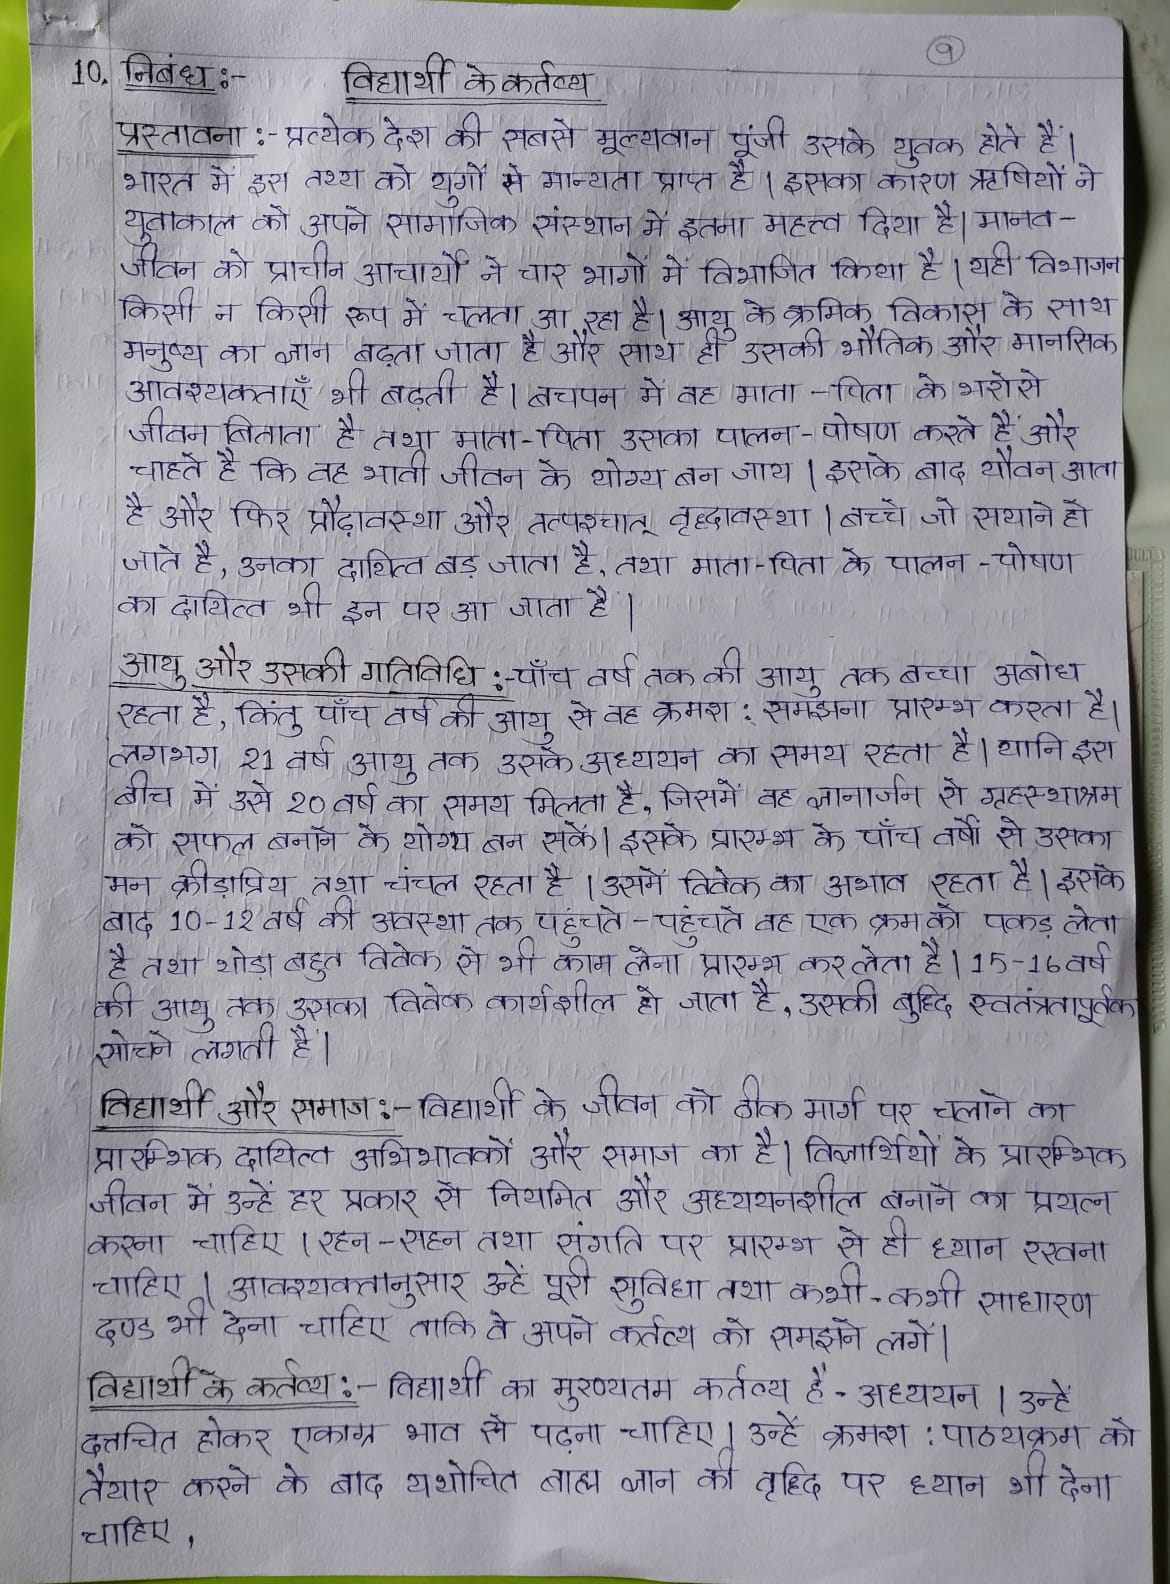 9
10. निबंध :- विद्यार्थी के कर्तव्य
प्रस्तावना :- प्रत्येक देश की सबसे मूल्यवान पूंजी उसके युवक होते हैं।
भारत में इस तथ्य को युगों से मान्यता प्राप्त है। इसका कारण ऋषियों ने
युवाकाल को अपने सामाजिक संस्थान में इतना महत्त्व दिया है। मानव-
जीवन को प्राचीन आचार्यों ने चार भागों में विभाजित किया है। यही विभाजन
किसी न किसी रूप में चलता आ रहा है। आयु के क्रमिक विकास के साथ
मनुष्य का ज्ञान बढ़ता जाता है और साथ ही उसकी भौतिक और मानसिक
आवश्यकताएँ भी बढ़ती है। बचपन में वह माता-पिता के भरोसे
जीवन बिताता है तथा माता-पिता उसका पालन-पोषण करते हैं और
चाहते है कि वह भावी जीवन के योग्य बन जाय। इसके बाद यौवन आता
है और फिर प्रौढ़ावस्था और तत्पश्चात् वृद्धावस्था। बच्चे जो सयाने हो
जाते है, उनका दायित्व बड़ जाता है, तथा माता-पिता के पालन-पोषण
का दायित्व भी इन पर आ जाता है।
आयु और उसकी गतिविधि :- पाँच वर्ष तक की आयु तक बच्चा अबोध
रहता है, किंतु पाँच वर्ष की आयु से वह क्रमश: समझना प्रारम्भ करता है।
लगभग 21 वर्ष आयु तक उसके अध्ययन का समय रहता है। यानि इस
बीच में उसे 20 वर्ष का समय मिलता है, जिसमें वह ज्ञानार्जन से गृहस्थाश्रम
को सफल बनाने के योग्य बन सकें। इसके प्रारम्भ के पाँच वर्षों से उसका
मन क्रीड़ाप्रिय तथा चंचल रहता है। उसमें विवेक का अभाव रहता है। इसके
बाद 10-12 वर्ष की अवस्था तक पहुंचते-पहुंचते वह एक क्रम को पकड़ लेता
है तथा थोड़ा बहुत विवेक से भी काम लेना प्रारम्भ कर लेता है। 15-16 वर्ष
की आयु तक उसका विवेक कार्यशील हो जाता है, उसकी बुद्धि स्वतंत्रतापूर्वक
सोचने लगती हैं।
विद्यार्थी और समाज :- विद्यार्थी के जीवन को ठीक मार्ग पर चलाने का
प्रारम्भिक दायित्व अभिभावकों और समाज का है। विद्यार्थियों के प्रारम्भिक
जीवन में उन्हें हर प्रकार से नियमित और अध्ययनशील बनाने का प्रयत्न
करना चाहिए। रहन-सहन तथा संगति पर प्रारम्भ से ही ध्यान रखना
चाहिए। आवश्यक्तानुसार उन्हें पूरी सुविधा तथा कभी-कभी साधारण
दण्ड भी देना चाहिए ताकि वे अपने कर्तव्य को समझने लगें।
विद्यार्थी के कर्तव्य :- विद्यार्थी का मुख्यतम कर्तव्य है - अध्ययन। उन्हें
दत्तचित होकर एकाग्र भाव से पढ़ना चाहिए। उन्हें क्रमश: पाठयक्रम को
तैयार करने के बाद यथोचित बाह्य ज्ञान की वृद्धि पर ध्यान भी देना
चाहिए,